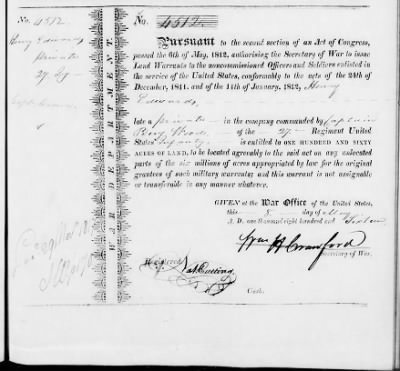 No. 4512
Henry Edwards
private
27. Reg
No. 4512.
Pursuant to the second section of an Act of Congress,
passed the 6th of May, 1812, authorising the Secretary of War to issue
Land Warrants to the noncommissioned Officers and Soldiers enlisted in
the service of the United States, conformably to the acts of the 24th of
December, 1811, and of the 11th of January, 1812, Henry
Edwards,
late a private in the company commanded by Captain
of the 27 Regiment United
States' Infantry is entitled to ONE HUNDRED AND SIXTY
ACRES OF LAND, to be located agreeably to the said act on any unlocated
parts of the six millions of acres appropriated by law for the original
grantees of such military warrants; and this warrant is not assignable
or transferable in any manner whatever.
WAR DEPARTMENT.
GIVEN at the War Office of the United States,
this 8 day of May
A. D. one thousand eight hundred and sixteen
Wm H Crawford
Secretary of War.
Registered